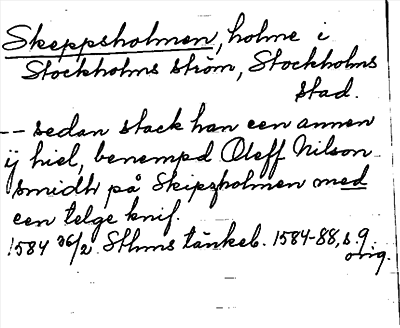 Skeppsholmen, holme i
Stockholms ström, Stockholms
stad.
-- sedan stack han een annen
ÿ hiel, benempd Oleff Nilson
smidh på Skipzholmen med
een telge knif.
1584 26/2. Sthms tänkeb. 1584-88, s. 9.
orig.